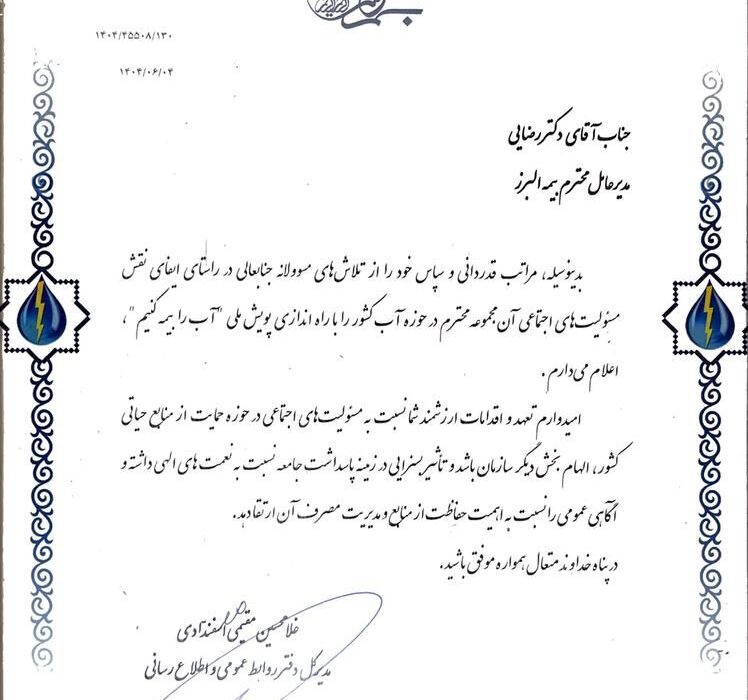 ۱۴۰۴/۲۵۵۰۸/۱۳۰
۱۴۰۴/۰۶/۰۴
جناب آقای دکتر رضایی
مدیرعامل محترم بیمه البرز
بدینوسیله، مراتب قدردانی و سپاس خود را از تلاش‌های مسوولانه جنابعالی در راستای ایفای نقش
مسئولیت‌های اجتماعی آن مجموعه محترم در حوزه آب کشور را با راه اندازی پویش ملی "آب را بیمه کنیم"،
اعلام می‌دارم.
امیدوارم تعهد و اقدامات ارزشمند شما نسبت به مسئولیت‌های اجتماعی در حوزه حمایت از منابع حیاتی
کشور، الهام بخش دیگر سازمان باشد و تأثیر بسزایی در زمینه پاسداشت جامعه نسبت به نعمت های الهی داشته و
آگاهی عمومی را نسبت به اهمیت حفاظت از منابع و مدیریت مصرف آن ارتقا دهد.
در پناه خداوند متعال همواره موفق باشید.
غلامحسین مقیمی اسفندآبادی
مدیرکل دفتر روابط عمومی و اطلاع رسانی